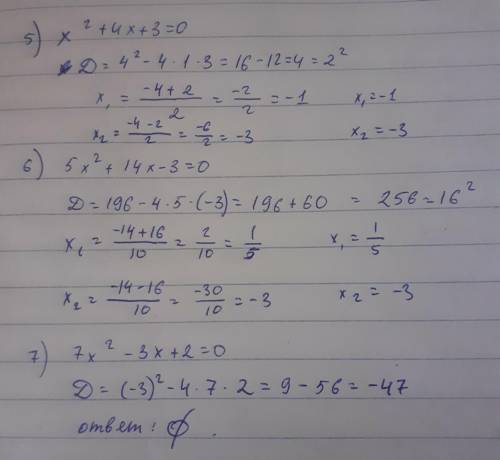 5) x² + 4x + 3 = 0
D = 4² - 4 · 1 · 3 = 16 - 12 = 4 = 2²
x₁ = (-4 + 2)/2 = -2/2 = -1    x₁ = -1
x₂ = (-4 - 2)/2 = -6/2 = -3    x₂ = -3
6) 5x² + 14x - 3 = 0
D = 196 - 4 · 5 · (-3) = 196 + 60 = 256 = 16²
x₁ = (-14 + 16)/10 = 2/10 = 1/5    x₁ = 1/5
x₂ = (-14 - 16)/10 = -30/10 = -3    x₂ = -3
7) 7x² - 3x + 2 = 0
D = (-3)² - 4 · 7 · 2 = 9 - 56 = -47
ответ: ∅.